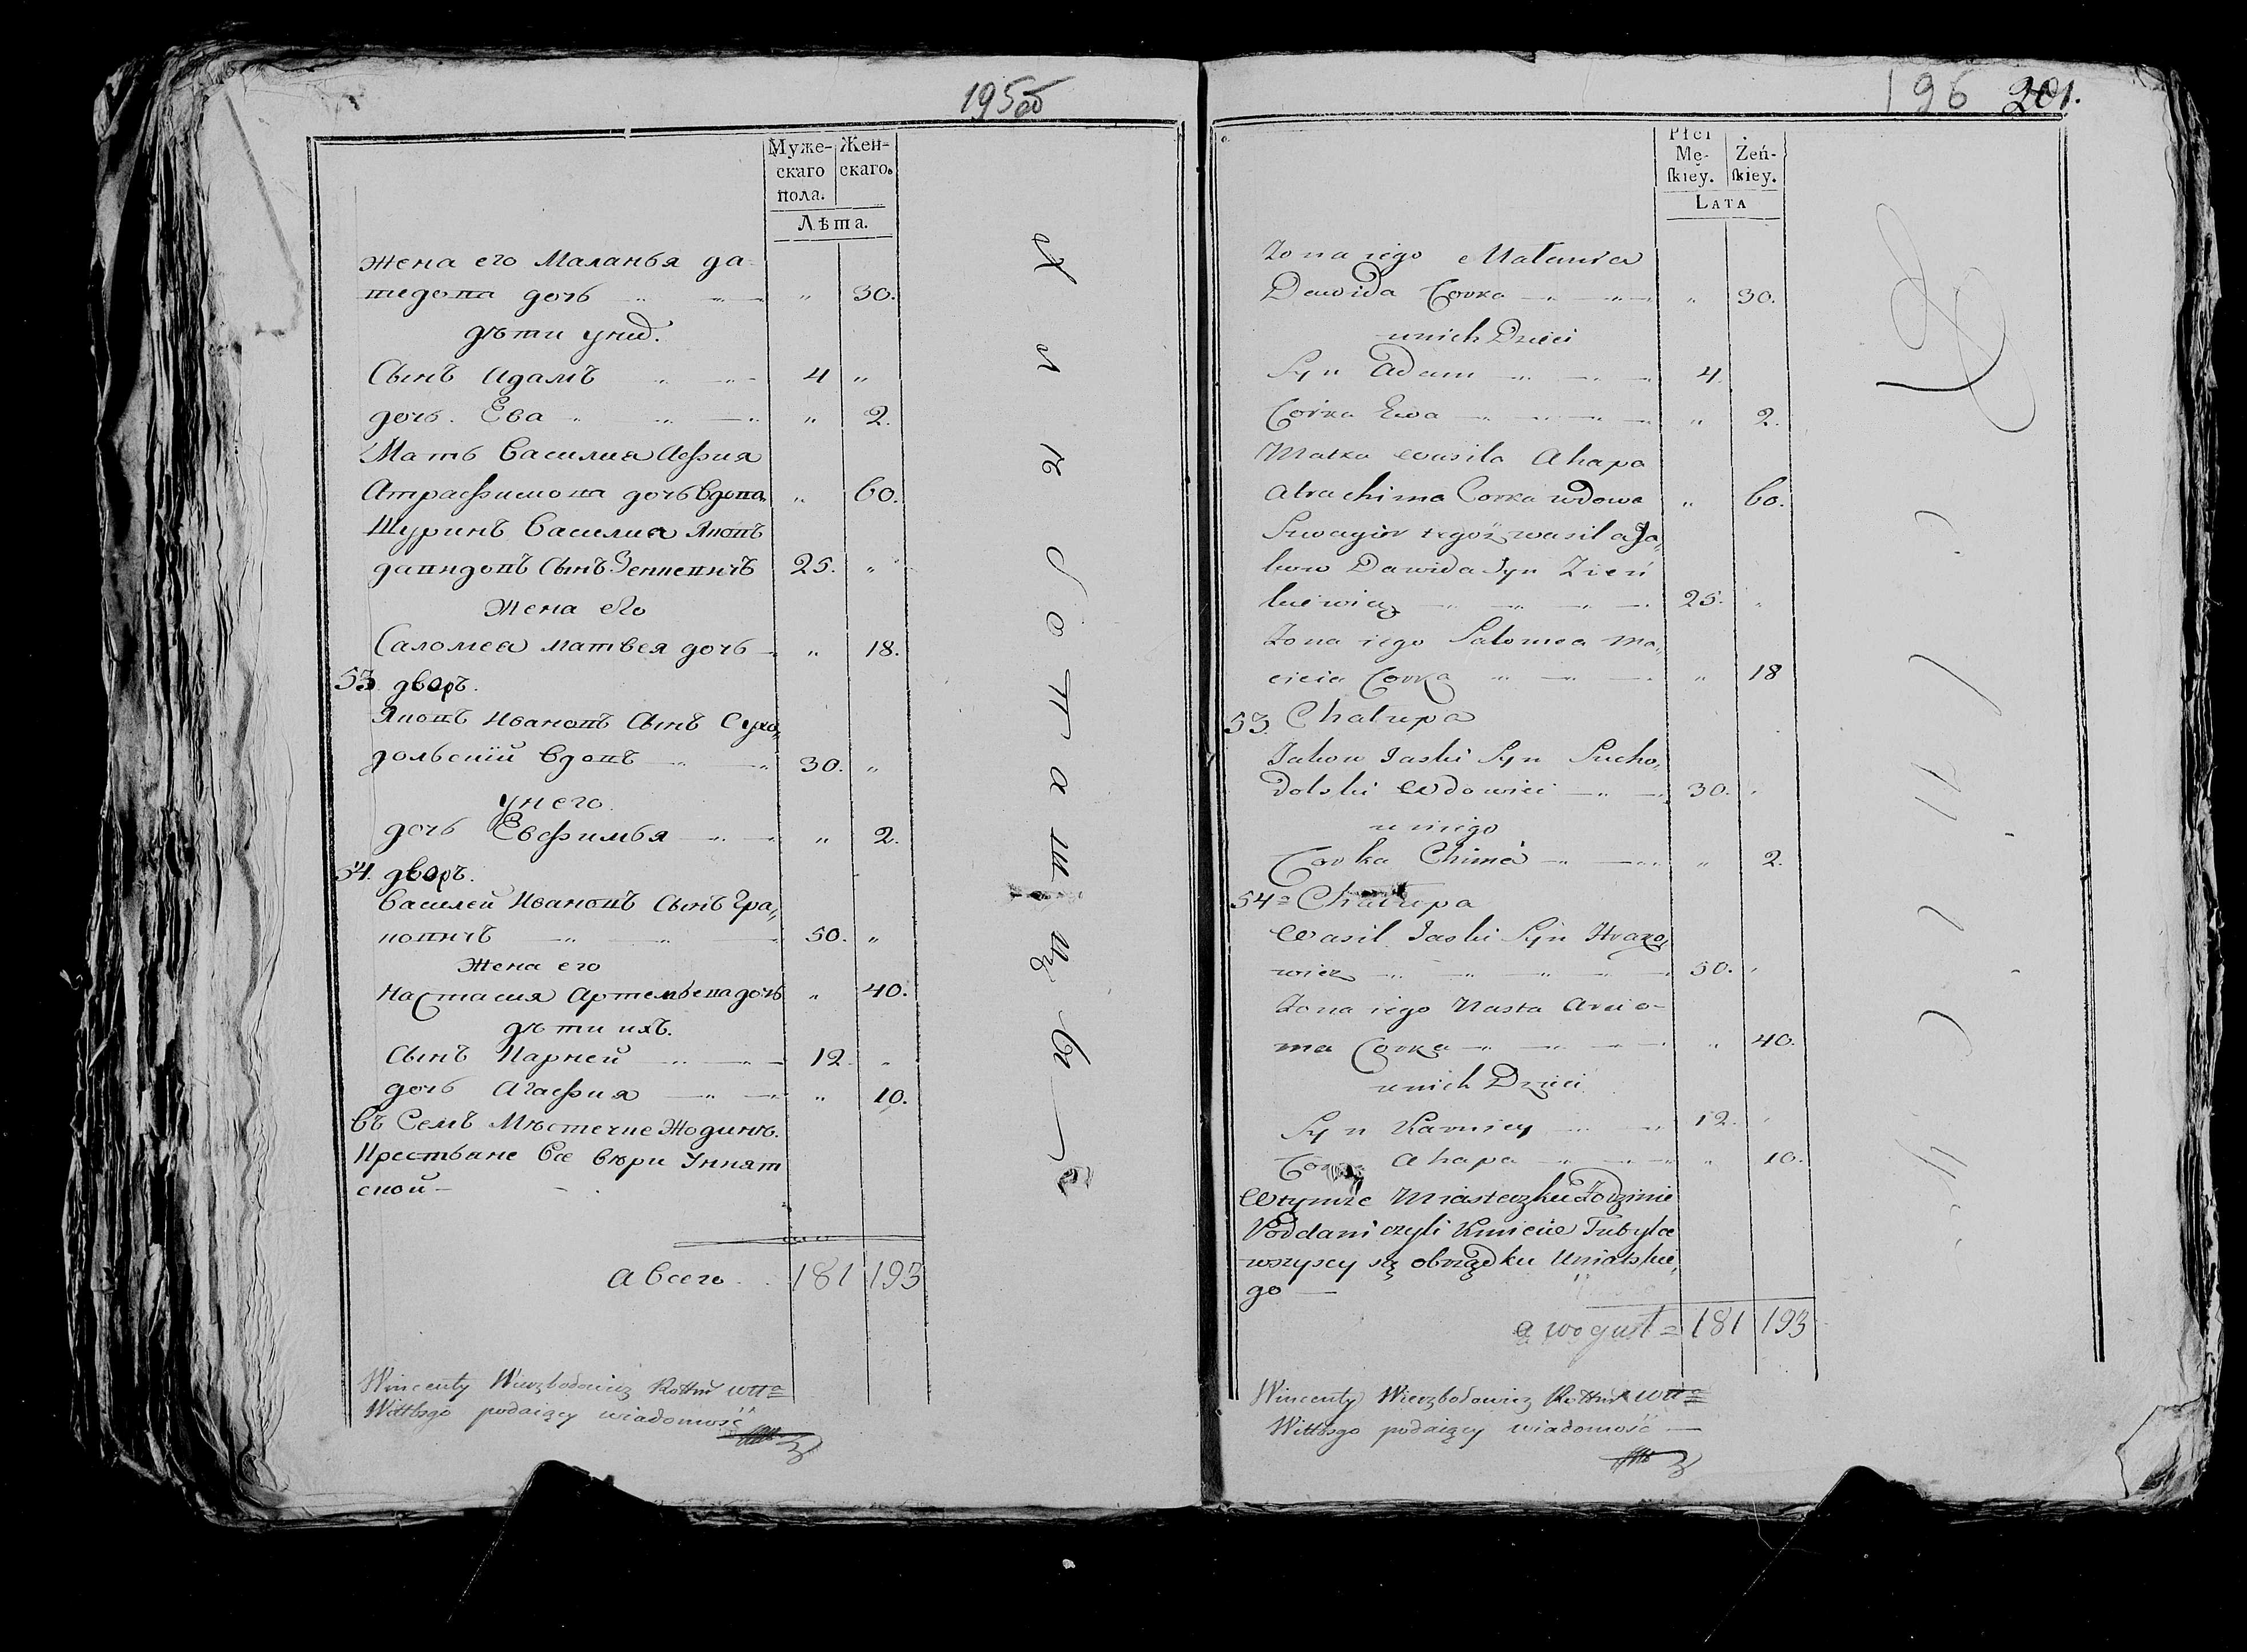 195 об
Муже-
скаго
пола.
Жен-
скаго.
Лѣта.
Жена его Маланья да
видова дочь " 30.
дѣти у нид.
Сынъ Адамъ 4 "
дочь Ева " 2.
Мать Василиа Афия
дочь вдова " 60.
Шуринъ Василиа Яковъ
давидовъ Сынъ Зенкевичъ 25. "
Жена его
Саломеа матвея дочь " 18.
53. дворъ.
Яковъ Ивановъ Сынъ Сухо„
дольский вдовъ 30. "
У него
дочь Евфимья " 2.
54. дворъ.
Василей Ивановъ Сынъ Гра„
ковичъ 50. "
Жена его
Настасия Артемьева дочь " 40.
дѣти ихъ.
Сынъ Карней 12. "
дочь Агафия " 10.
въ Семъ Мѣстечке Жодинѣ.
Крестьяне все вѣри Уният
ской
а всего 181 193
Wincenty Wierzbołowicz Rottm wtt
Wittbsgo podaiący wiadomość
196 201.
Płci
Mę-
skiey.
Żeń-
skiey.
Lata
Zona iego Małania
Dawida Corka " 30.
u nich Dzieci
Syn Adam 4.
Corka Ewa " 2.
Matka Wasila Ahapa
Atrachima Corka wdowa " 60.
Szwagier tegoż Wasila Ja„
kow Dawida Syn Zień
kiewicz 25. "
Zona iego Salomea Ma„
cieia Corka " 18
53. Chalupa
Jakow Jaski Syn Sucho„
Dolski Wdowiec 30. "
u niego
Corka Chima " 2.
54 Chalupa
Wasil Jaski Syn Hrako„
wicz 50. "
Zona iego Nasta Arcio-
ma Corka " 40.
u nich Dzieci
Syn Karniey 12. "
Corka Ahapa " 10.
W tymże Miasteczku Żodzinie
Poddani czyli Kmiecie Tubylce
wszyscy są obrządku Uniatskie„
go
a wogule 181 193
Wincenty Wierzbołowicz Rottm wtt
Wittbsgo podaiący wiadomość